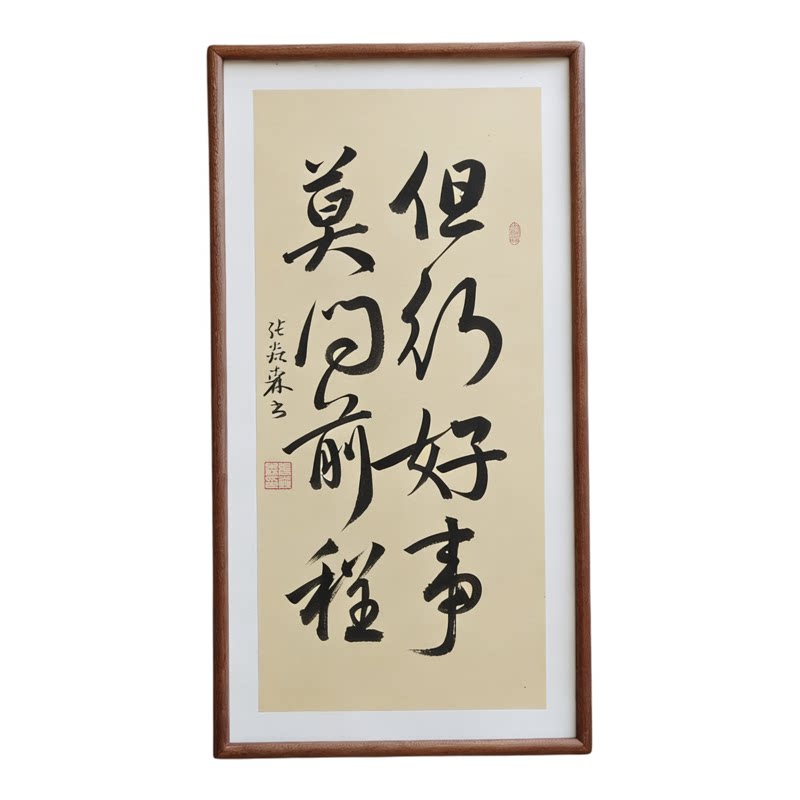 但行好事
莫问前程
张焱森书